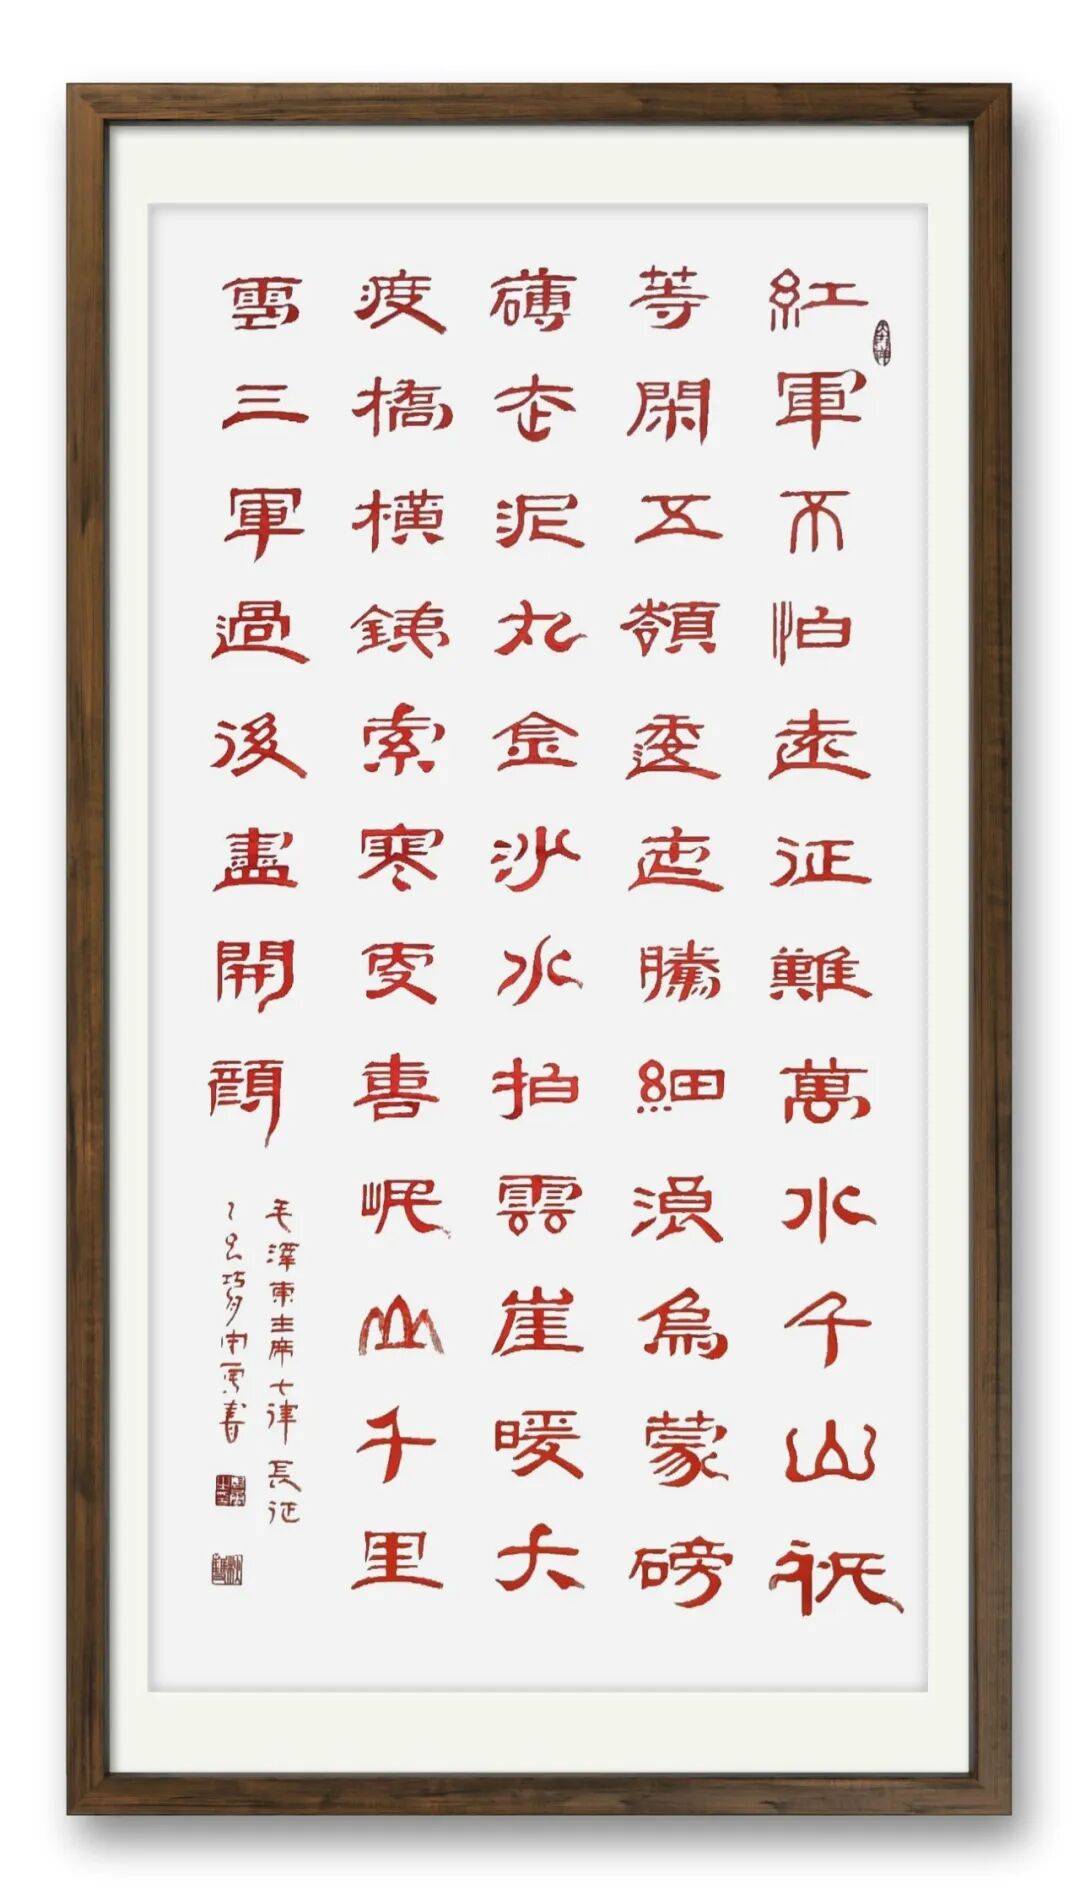 紅軍不怕遠征難萬水千山祇
等閑五嶺逶迤騰細浪烏蒙磅
礴走泥丸金沙水拍雲崖暖大
渡橋橫鐵索寒更喜岷山千里
雪三軍過後盡開顏
毛澤東主席七律長征
乙巳巧月書